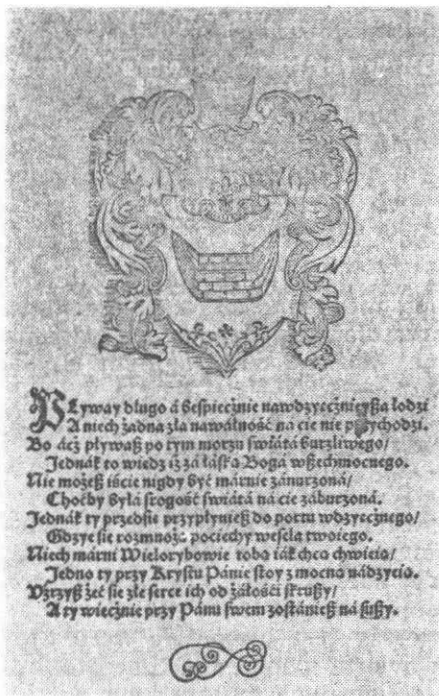 PLyway długo á beśpiecżnie nawdzyęcżnieyßa łodzi
A niech żadna zła nawáłność ná cie nie przychodzi.
Bo ácż pływaß po tym morzu świátá burzliwego/
Jednák to wiedz iż zá łáską Bogá wßechmocnego.
Nie możeß iście nigdy być márnie zánurzoná/
Choćby byłá srogość świátá ná cie záburzona.
Jednák ty przedsie przypłynieß do portu wdzyęcżnego/
Gdzye sie rozmnożą pociechy wesela twoiego.
Niech márni Wielorybowie tobą iák chcą chwieią/
Jedno ty przy Krystu Pánie stoy z mocną nádzyeią.
Vźrzyß żeć sie złe serce ich od żáłości skrußy/
A ty wiecżnie przy Pánu swem zostánieß ná sußy.